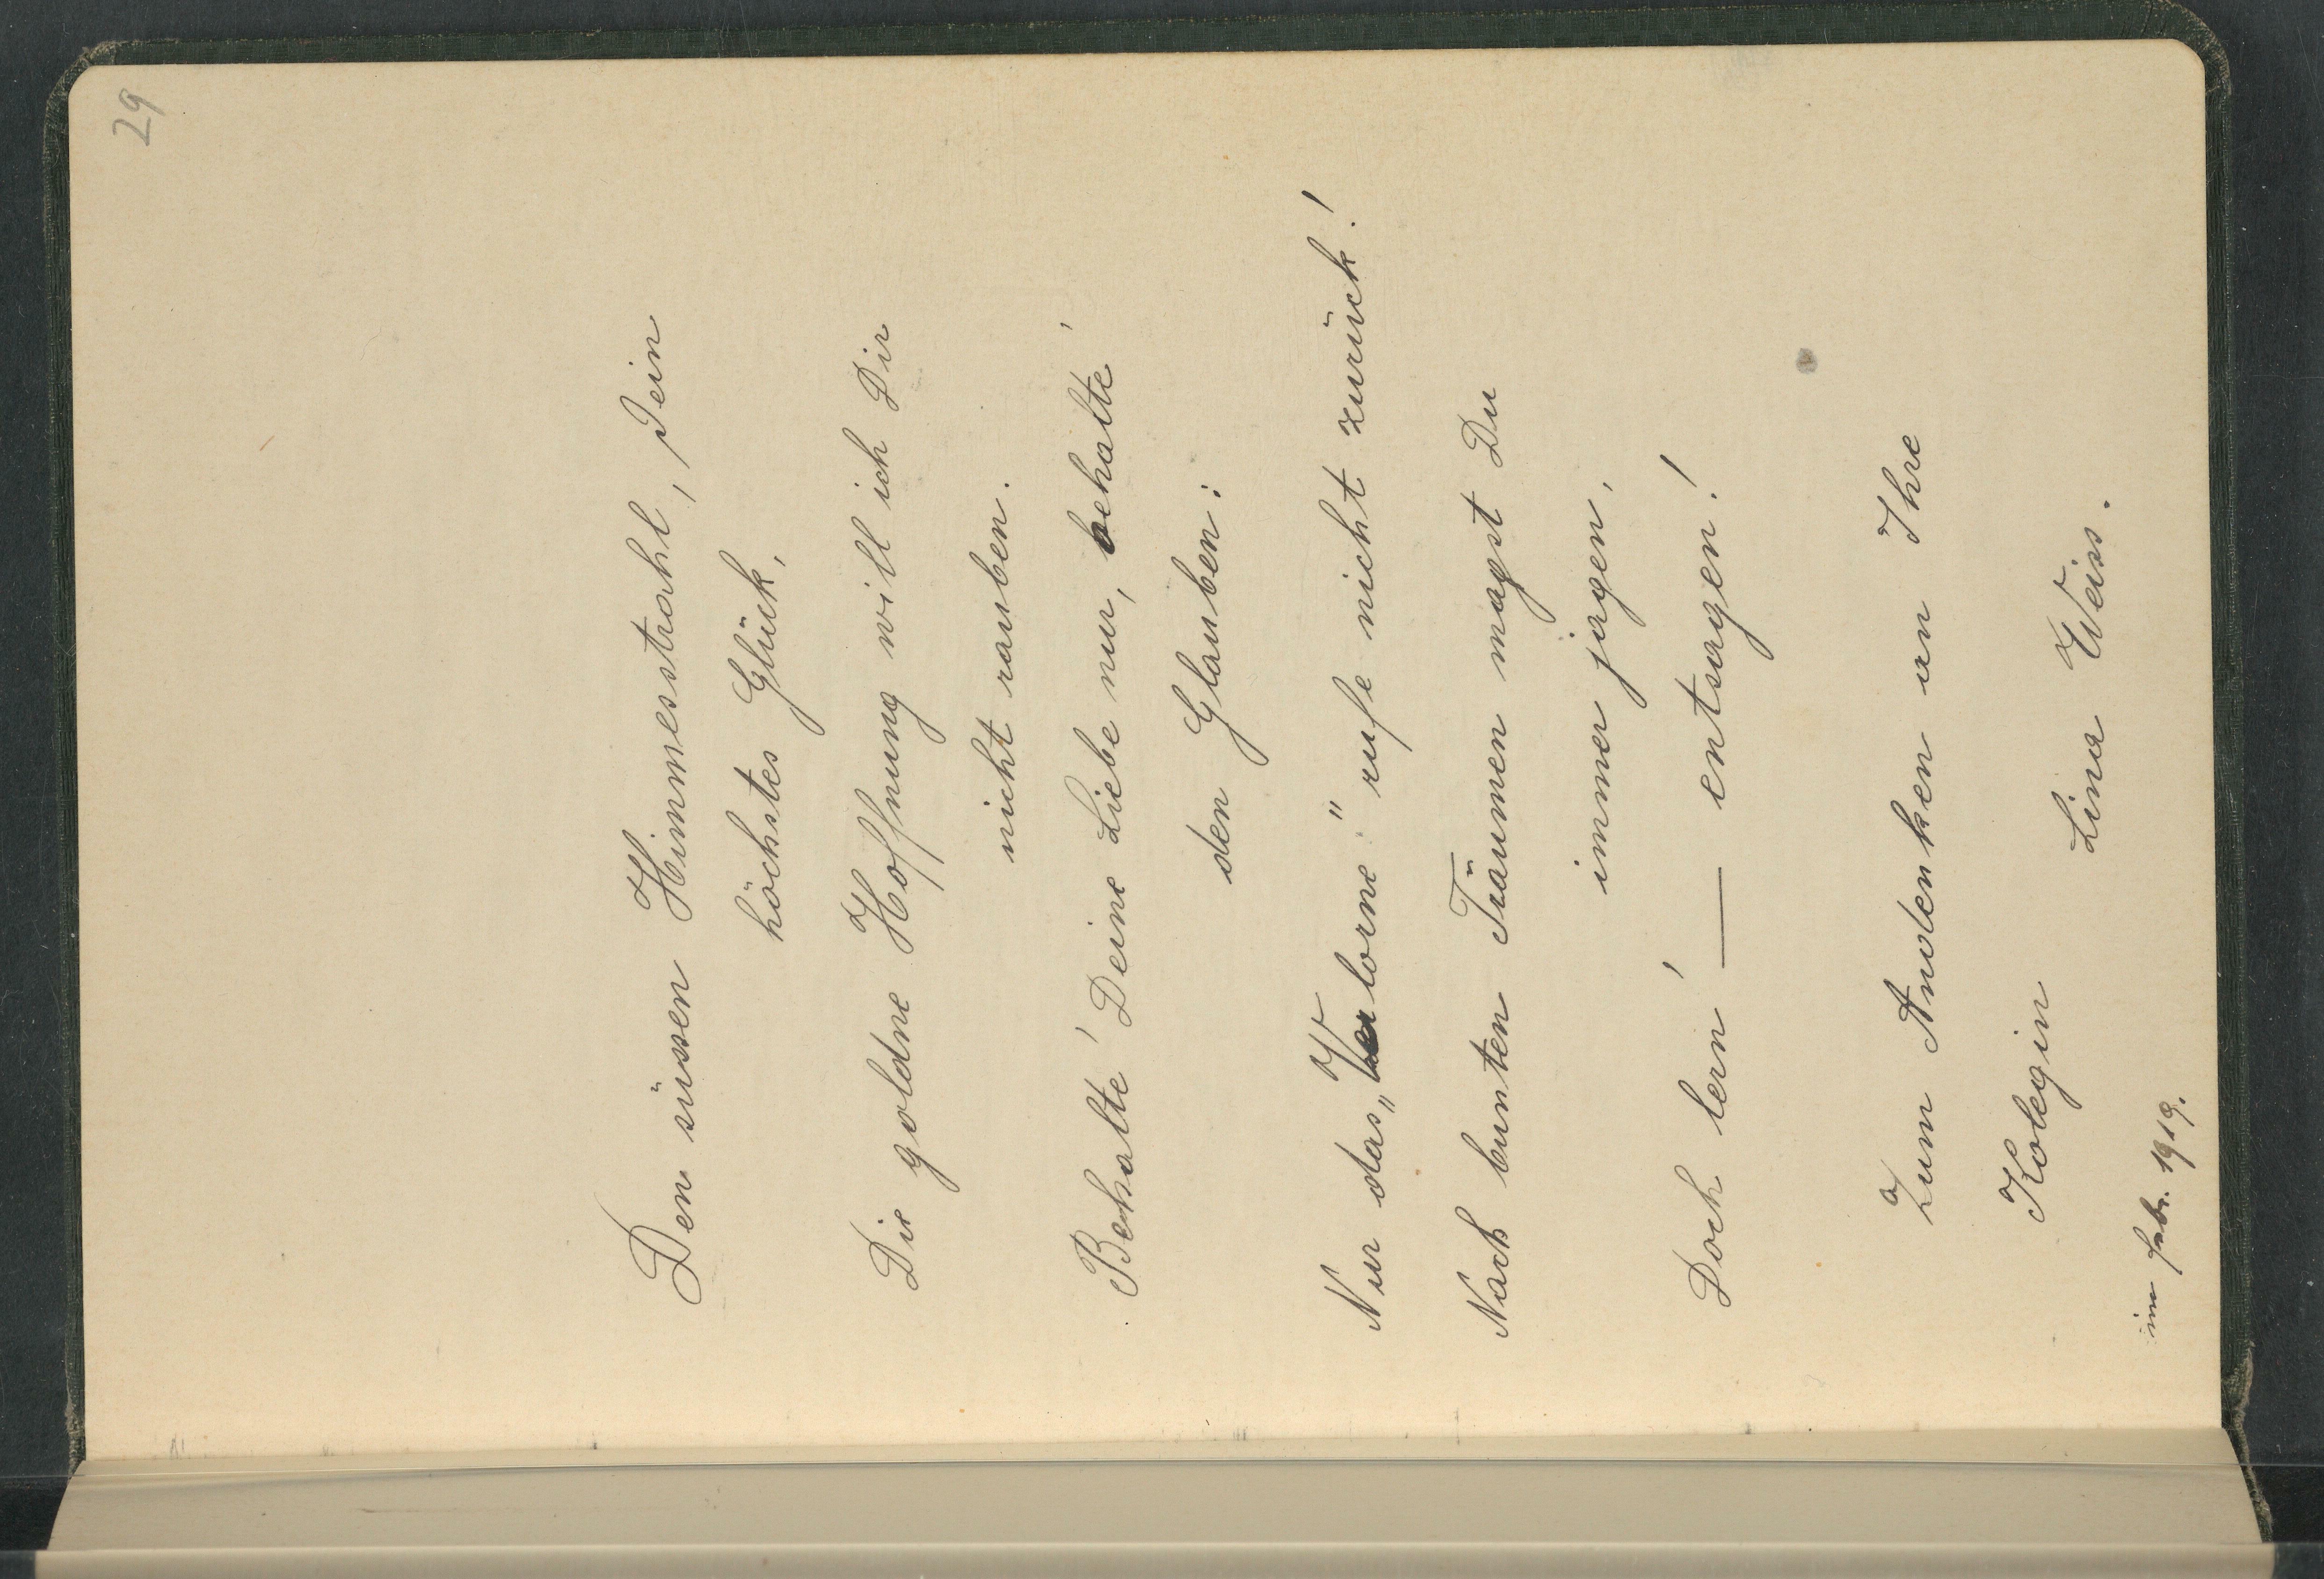 29
Den süssen Himmesstrahl, Dein
höchstes Glück,
Die goldne Hoffnung will ich Dir
nicht rauben.
Behalte' Deine Liebe nur, behalte'
den Glauben:
Nur das „Verlorne" rufe nicht zurück!
Nach bunten Träumen magst Du
immer jagen,
Doch lern' — entsagen!
Zum Andenken an Ihre
Kolegin
Lina Weiss.
im febr. 1919.